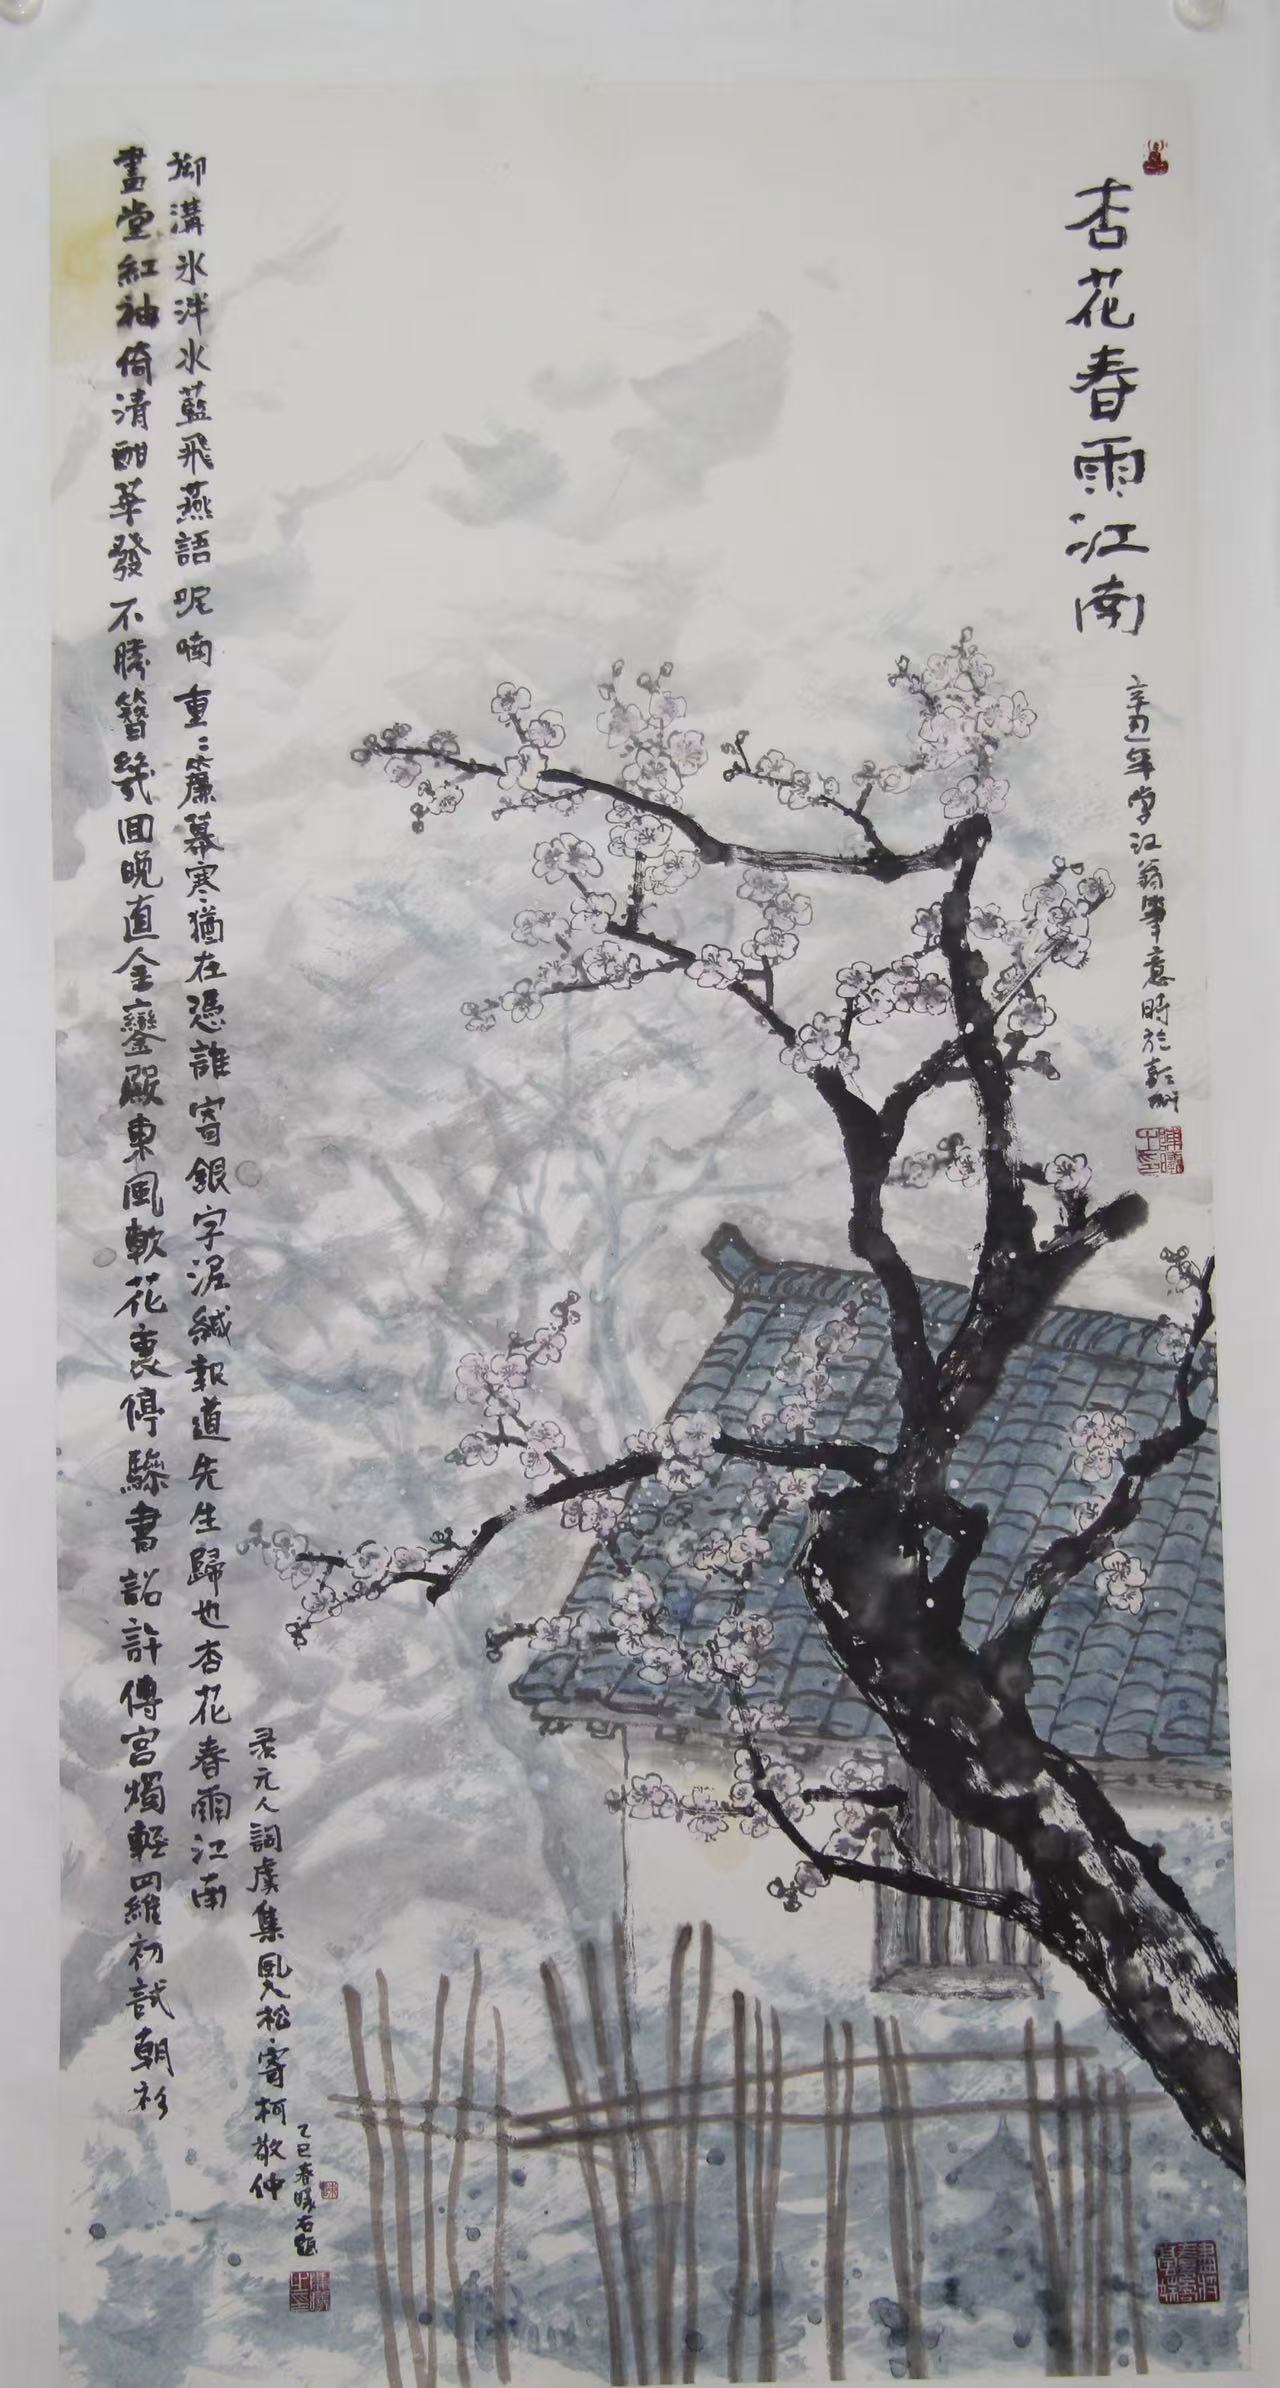 杏花春雨江南
辛丑年 江翁筆意時於
畫堂紅袖倚清酣華發不勝簪幾回晚直金鑾殿東風軟花裏停驂書詔許傳宮燭輕羅初試朝衫
御溝冰泮水藍飛燕語呢喃重〻簾幕寒猶在憑誰寄銀字泥緘報道先生歸也杏花春雨江南
录元人詞虞集風入松·寄柯敬仲
乙巳春曦石題